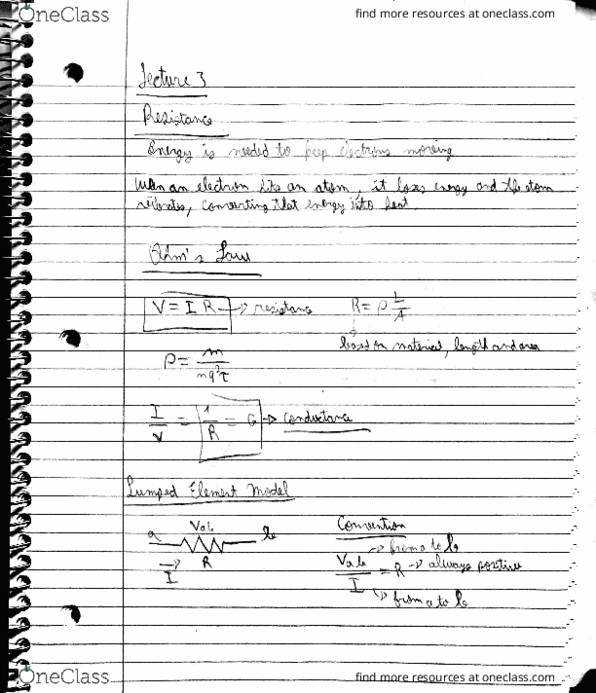 OneClass
find more resources at oneclass.com
Lecture 3
Resistance
Energy is needed to keep electrons moving
When an electron hits an atom, it loses energy and the atom
vibrates, converting that energy into heat.
Ohm's Law
V = I R → resistance
R = ρ L/A
based on material, length and area
ρ = m/nq²τ
I/V = 1/R = G → conductance
Lumped Element Model
a Vab b
I R
Convention
→ from a to b
Vab/I = R → always positive
→ from a to b
OneClass
find more resources at oneclass.com